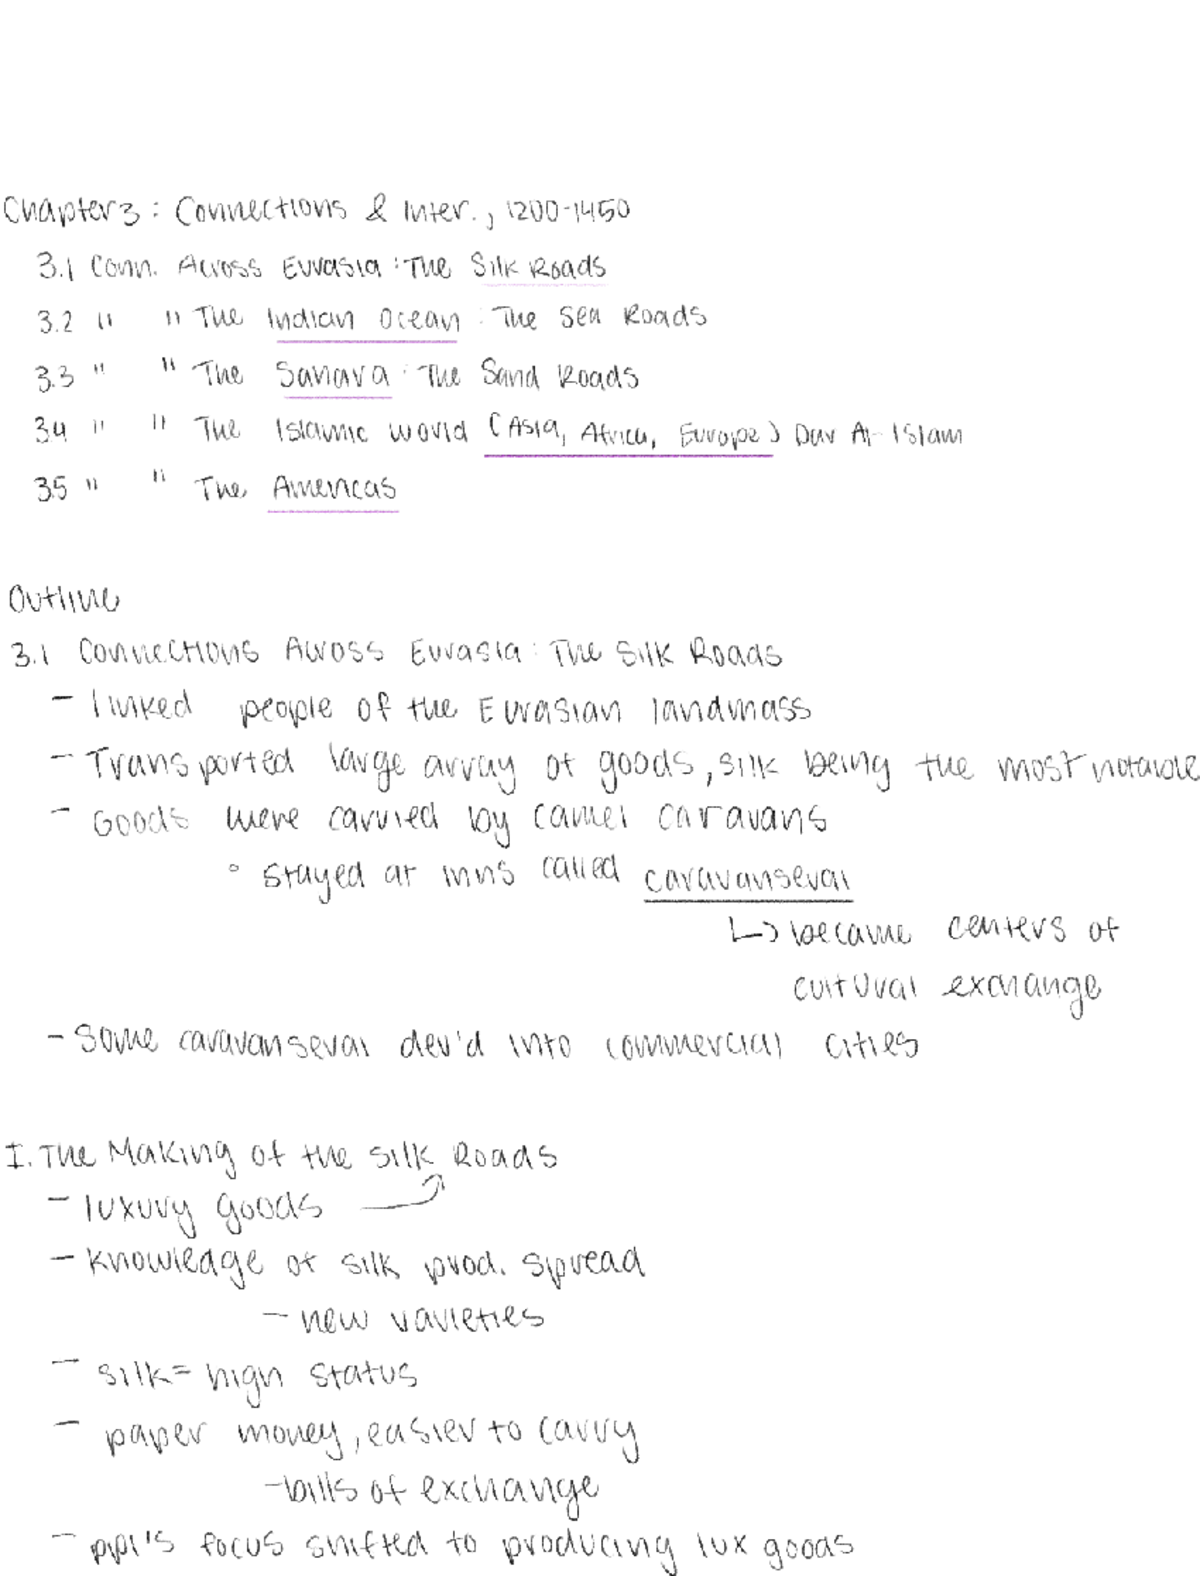 Chapter 3: Connections & Inter., 1200-1450
3.1 Conn. Across Eurasia: The Silk Roads
3.2 " " The Indian Ocean: The Sea Roads
3.3 " " The Sahara: The Sand Roads
3.4 " " The Islamic World (Asia, Africa, Europe) Dar Al-Islam
3.5 " " The Americas
Outline
3.1 Connections Across Eurasia: The Silk Roads
- linked people of the Eurasian landmass
- Transported large array of goods, silk being the most notable
- Goods were carried by camel caravans
° stayed at inns called caravanserai
↳ became centers of
cultural exchange
- Some caravanserai dev'd into commercial cities
I. The Making of the Silk Roads
- luxury goods
- knowledge of silk prod. spread
- new varieties
- silk = high status
- paper money, easier to carry
- bills of exchange
- ppl's focus shifted to producing lux goods